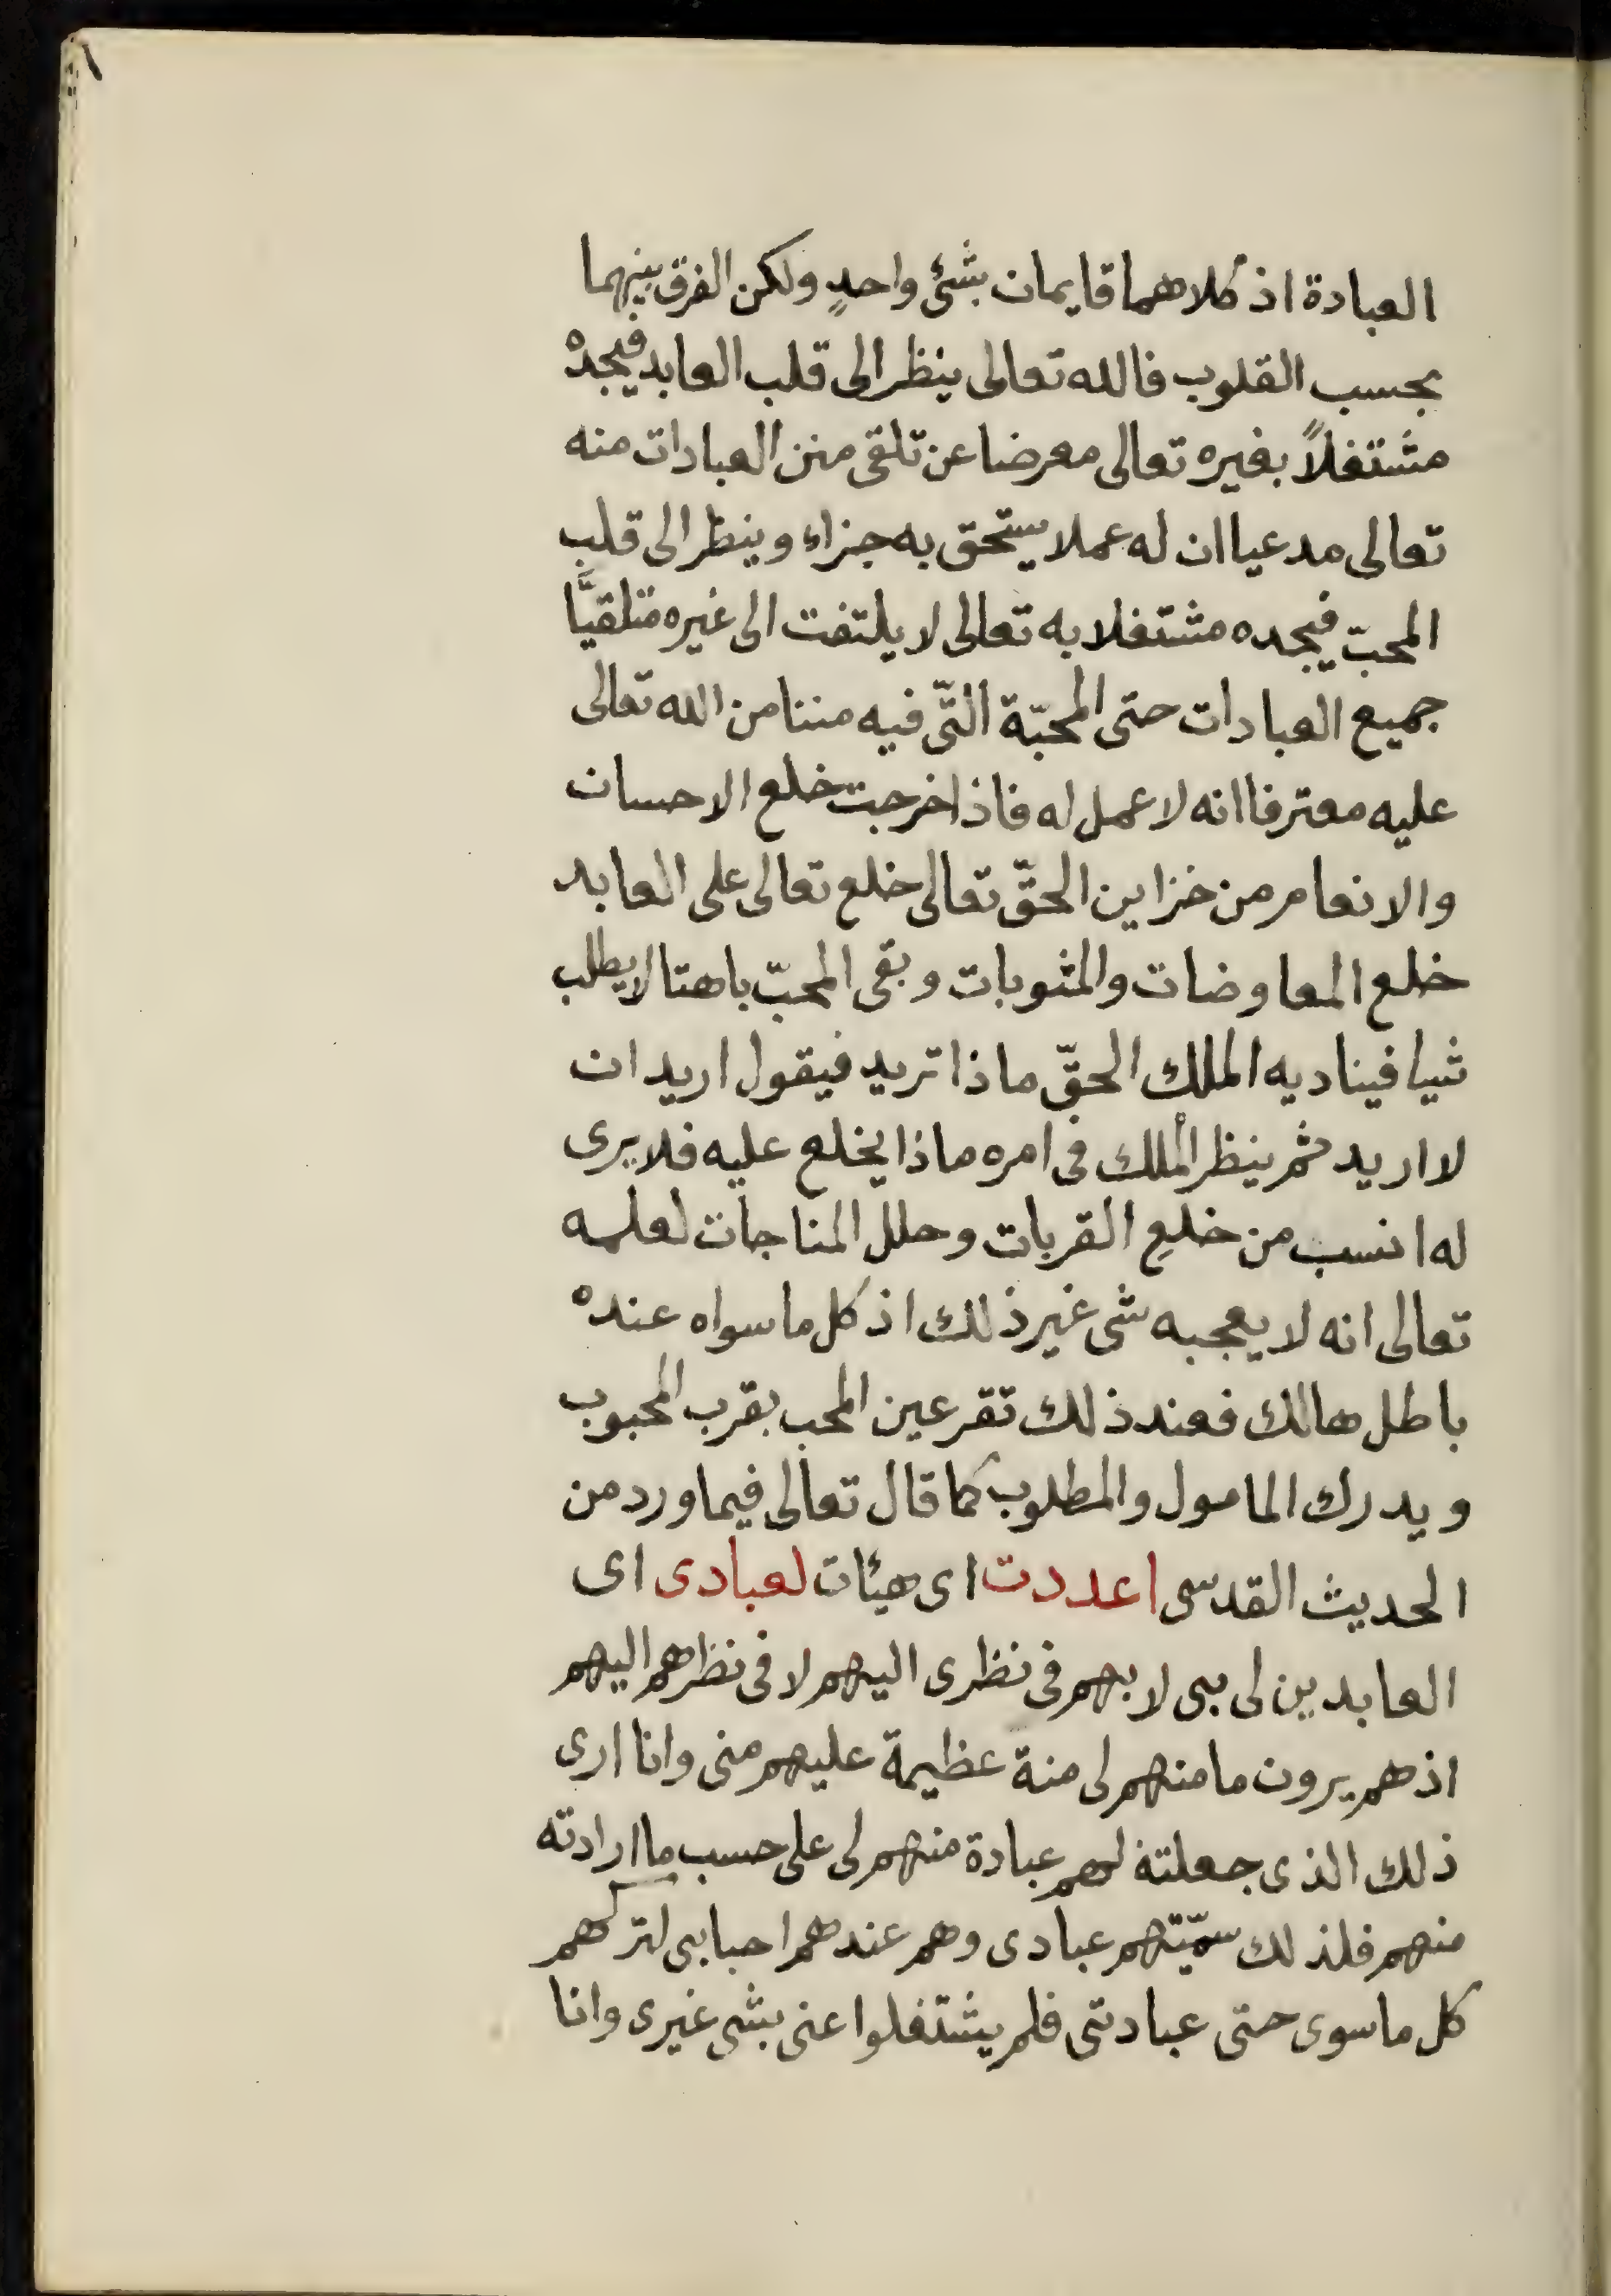 العبادة اذ كلاهما قايمان بشئ واحدٍ ولكن الفرق بينهما
بحسب القلوب فالله تعالى ينظر الى قلب العابد فيجده
مشتغلاً بغيره تعالى معرضا عن تلقى منن العبادات منه
تعالى مدعيا ان له عملا يستحق به جزاء وينظر الى قلب
المحبّ فيجده مشتغلا به تعالى لا يلتفت الى غيره متلقيًّا
جميع العبادات حتى المحبّة التّى فيه مننا من الله تعالى
عليه معترفا انه لا عمل له فاذا خرجت خلع الاحسان
والانعام من خزاين الحقّ تعالى خلع تعالى على العابد
خلع المعاوضات والمثوبات وبقى المحبّ باهتا لا يطلب
شيا فيناديه الملك الحقّ ماذا تريد فيقول اريد ان
لا اريد ثم ينظر الملك فى امره ماذا يخلع عليه فلا يرى
له انسب من خلع القربات وحلل المناجات لعلمه
تعالى انه لا يعجبه شى غير ذلك اذ كل ما سواه عنده
باطل هالك فعند ذلك تقر عين المحب بقرب المحبوب
ويدرك المامول والمطلوب كما قال تعالى فيما ورد من
الحديث القدسى اعددت اى هيئات لعبادى اى
العابدين لى بى لا بهم فى نظرى اليهم لا فى نظرهم اليهم
اذ هم يرون ما منهم لى منة عظيمة عليهم منى وانا ارى
ذلك الذى جعلته لهم عبادة منهم لى على حسب ما ارادته
منهم فلذلك سمّيتهم عبادى وهم عندهم احبابى لتركهم
كل ما سوى حتى عبادتى فلم يشتغلوا عنى بشى غيرى وانا